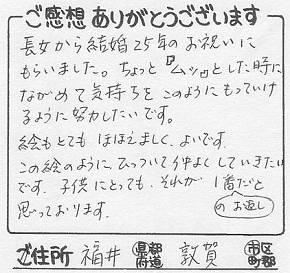 ご感想ありがとうございます
長女から結婚25年のお祝いに
もらいました。ちょっと『ムッ』とした時に
ながめて気持ちをこのようにもっていけ
るように努力したいです。
絵もとてもほほえましく、よいです。
この絵のように、ひっついて仲よくしていきたい
です。子供にとっても、それが1番だと
のお返し
思っております。
ご住所 福井 都道府県 敦賀 市区町郡